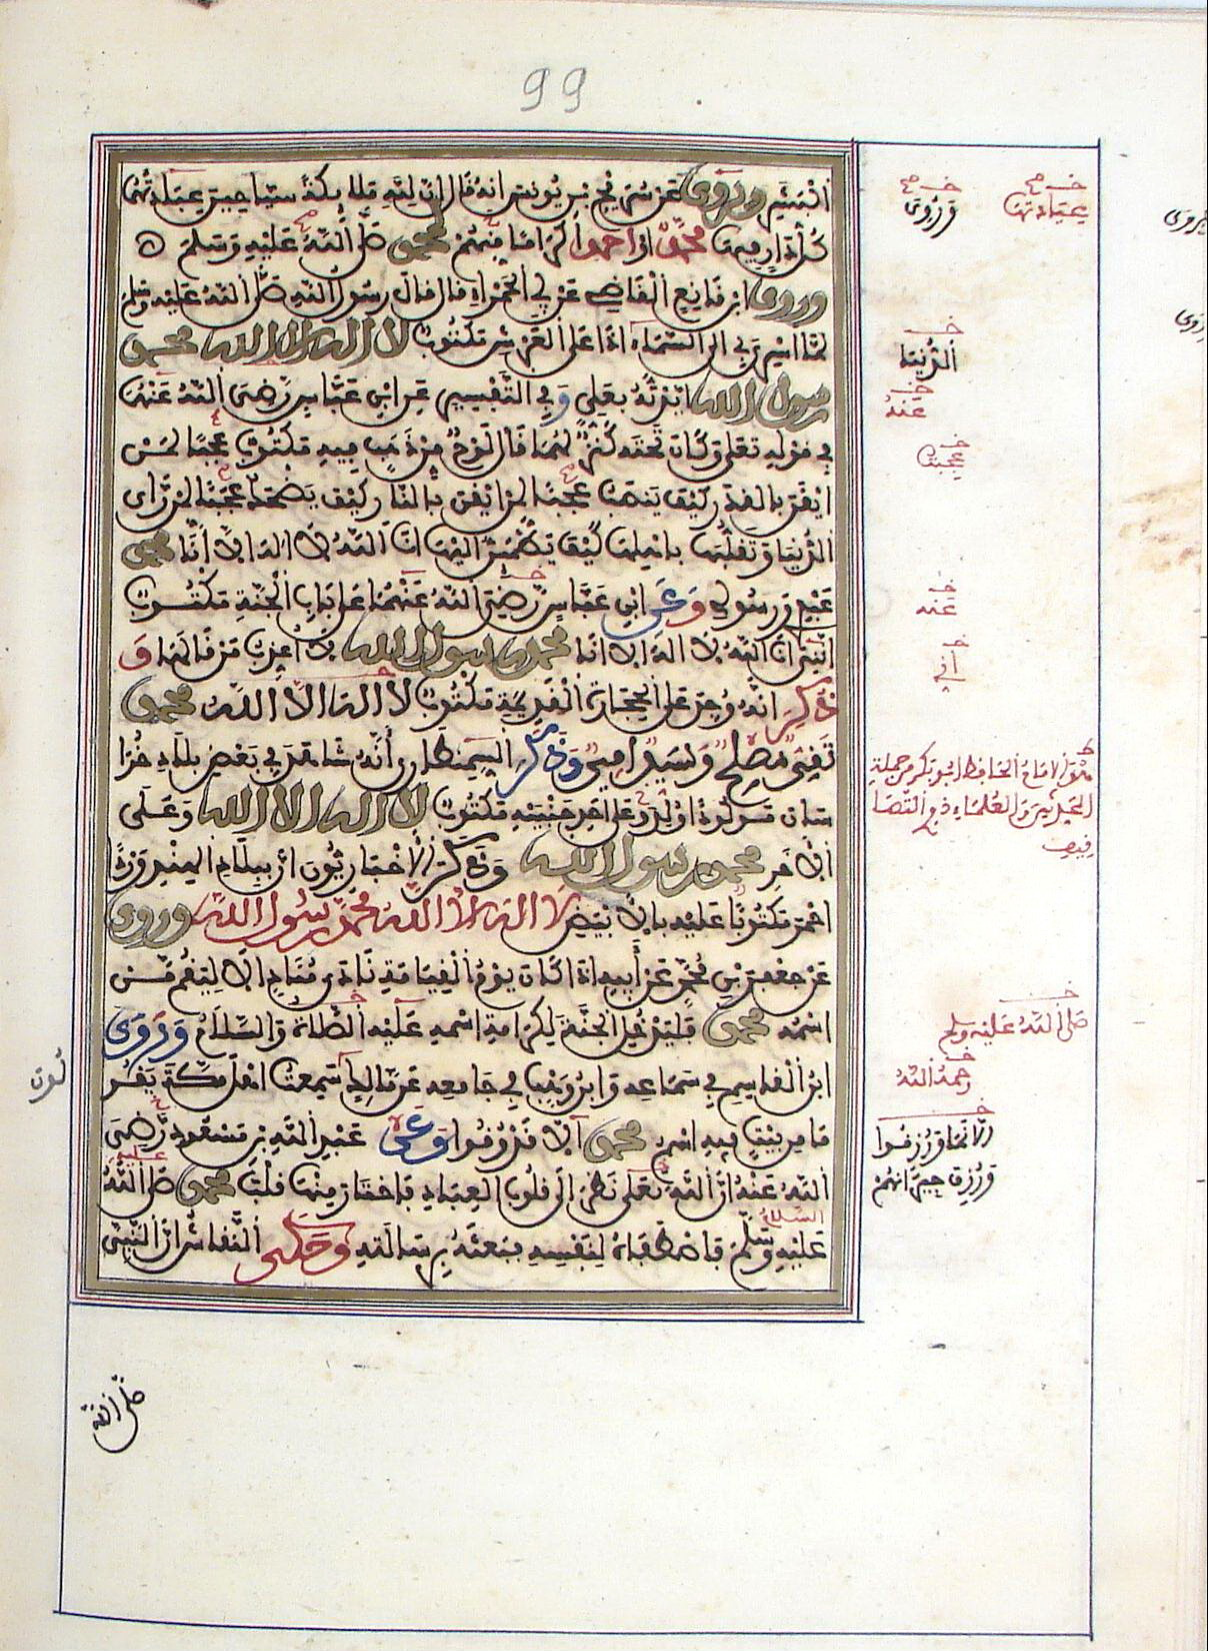 99
البشر وروي عن سريج بن يونس انه قال ان لله ملائكة سياحين عبادتها
كل دار فيها محمد او احمد اكراما منهم لمحمد صلى الله عليه وسلم
وروى ابن قانع القاضي عن ابي الحمراء قال قال رسول الله صلى الله عليه وسلم
لما اسري بي الى السماء اذا على العرش مكتوب لا اله الا الله محمد
رسول الله ايدته بعلي وفي التفسير عن ابن عباس رضي الله عنهما
في قوله تعلى وكان تحته كنز لهما قال لوح من ذهب فيه مكتوب عجبا لمن
ايقن بالقدر كيف ينصب عجبا لمن ايقن بالنار كيف يضحك عجبا لمن راى
الدنيا وتقلبها باهلها كيف يطمئن اليها انا الله لا اله الا انا محمد
عبدي ورسولي وعن ابن عباس رضي الله عنهما على باب الجنة مكتوب
انني انا الله لا اله الا انا محمد رسول الله لا اعذب من قالها و
ذكر انه وجد على الحجارة القديمة مكتوب لا اله الا الله محمد
تقي مصلح وسيد امين وذكر السمنطاري أنه شاهد في بعض بلاد خرا
سان مولودا ولد وعلى احد جنبيه مكتوب لا اله الا الله وعلى
الاخر محمد رسول الله وذكر الاخباريون ان ببلاد الهند وردا
احمر مكتوبا عليه بالابيض لا اله الا الله محمد رسول الله وروي
عن جعفر بن محمد عن أبيه اذا كان يوم القيامة نادى مناد الا ليقم من
اسمه محمد فليدخل الجنة لكرامة اسمه عليه الصلاة والسلام وروى
ابن القاسم في سماعه وابن وهب في جامعه عن مالك سمعت اهل مكة يقولون
ما من بيت فيه اسم محمد الا ورزقوا وعن عبد الله بن مسعود رضي
الله عنه ان الله تعلى نظر الى قلوب العباد فاختار منها قلب محمد صلى الله
عليه وسلم فاصطفاه لنفسه فبعثه برسالته وحكى النقاش ان النبي
صلى الله
عبادتها
وروي
الدنيا
عنه
عجبت
عنه
أني
الامام الحافظ ابو بكر من جملة
المحدثين والعلماء
صلى الله عليه وسلم
رحمه الله
الا نما ورزقوا
ورزق جيرانهم
عليه
السلام